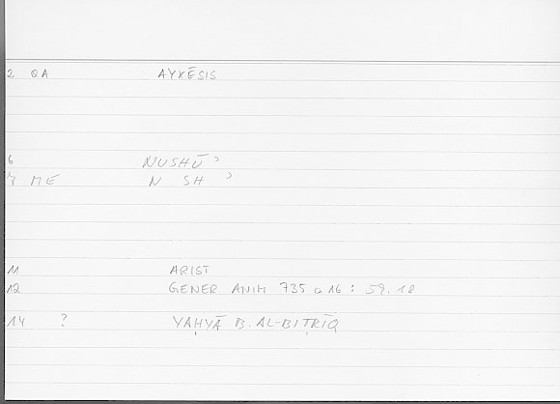 2 QA AYXĒSIS
6 NUSHŪ ʾ
7 ME N SH ʾ
11 ARIST
12 GENER ANIM 735 a 16 : 59.18
14 ? YAḤYĀ B. AL-BIṬRĪQ